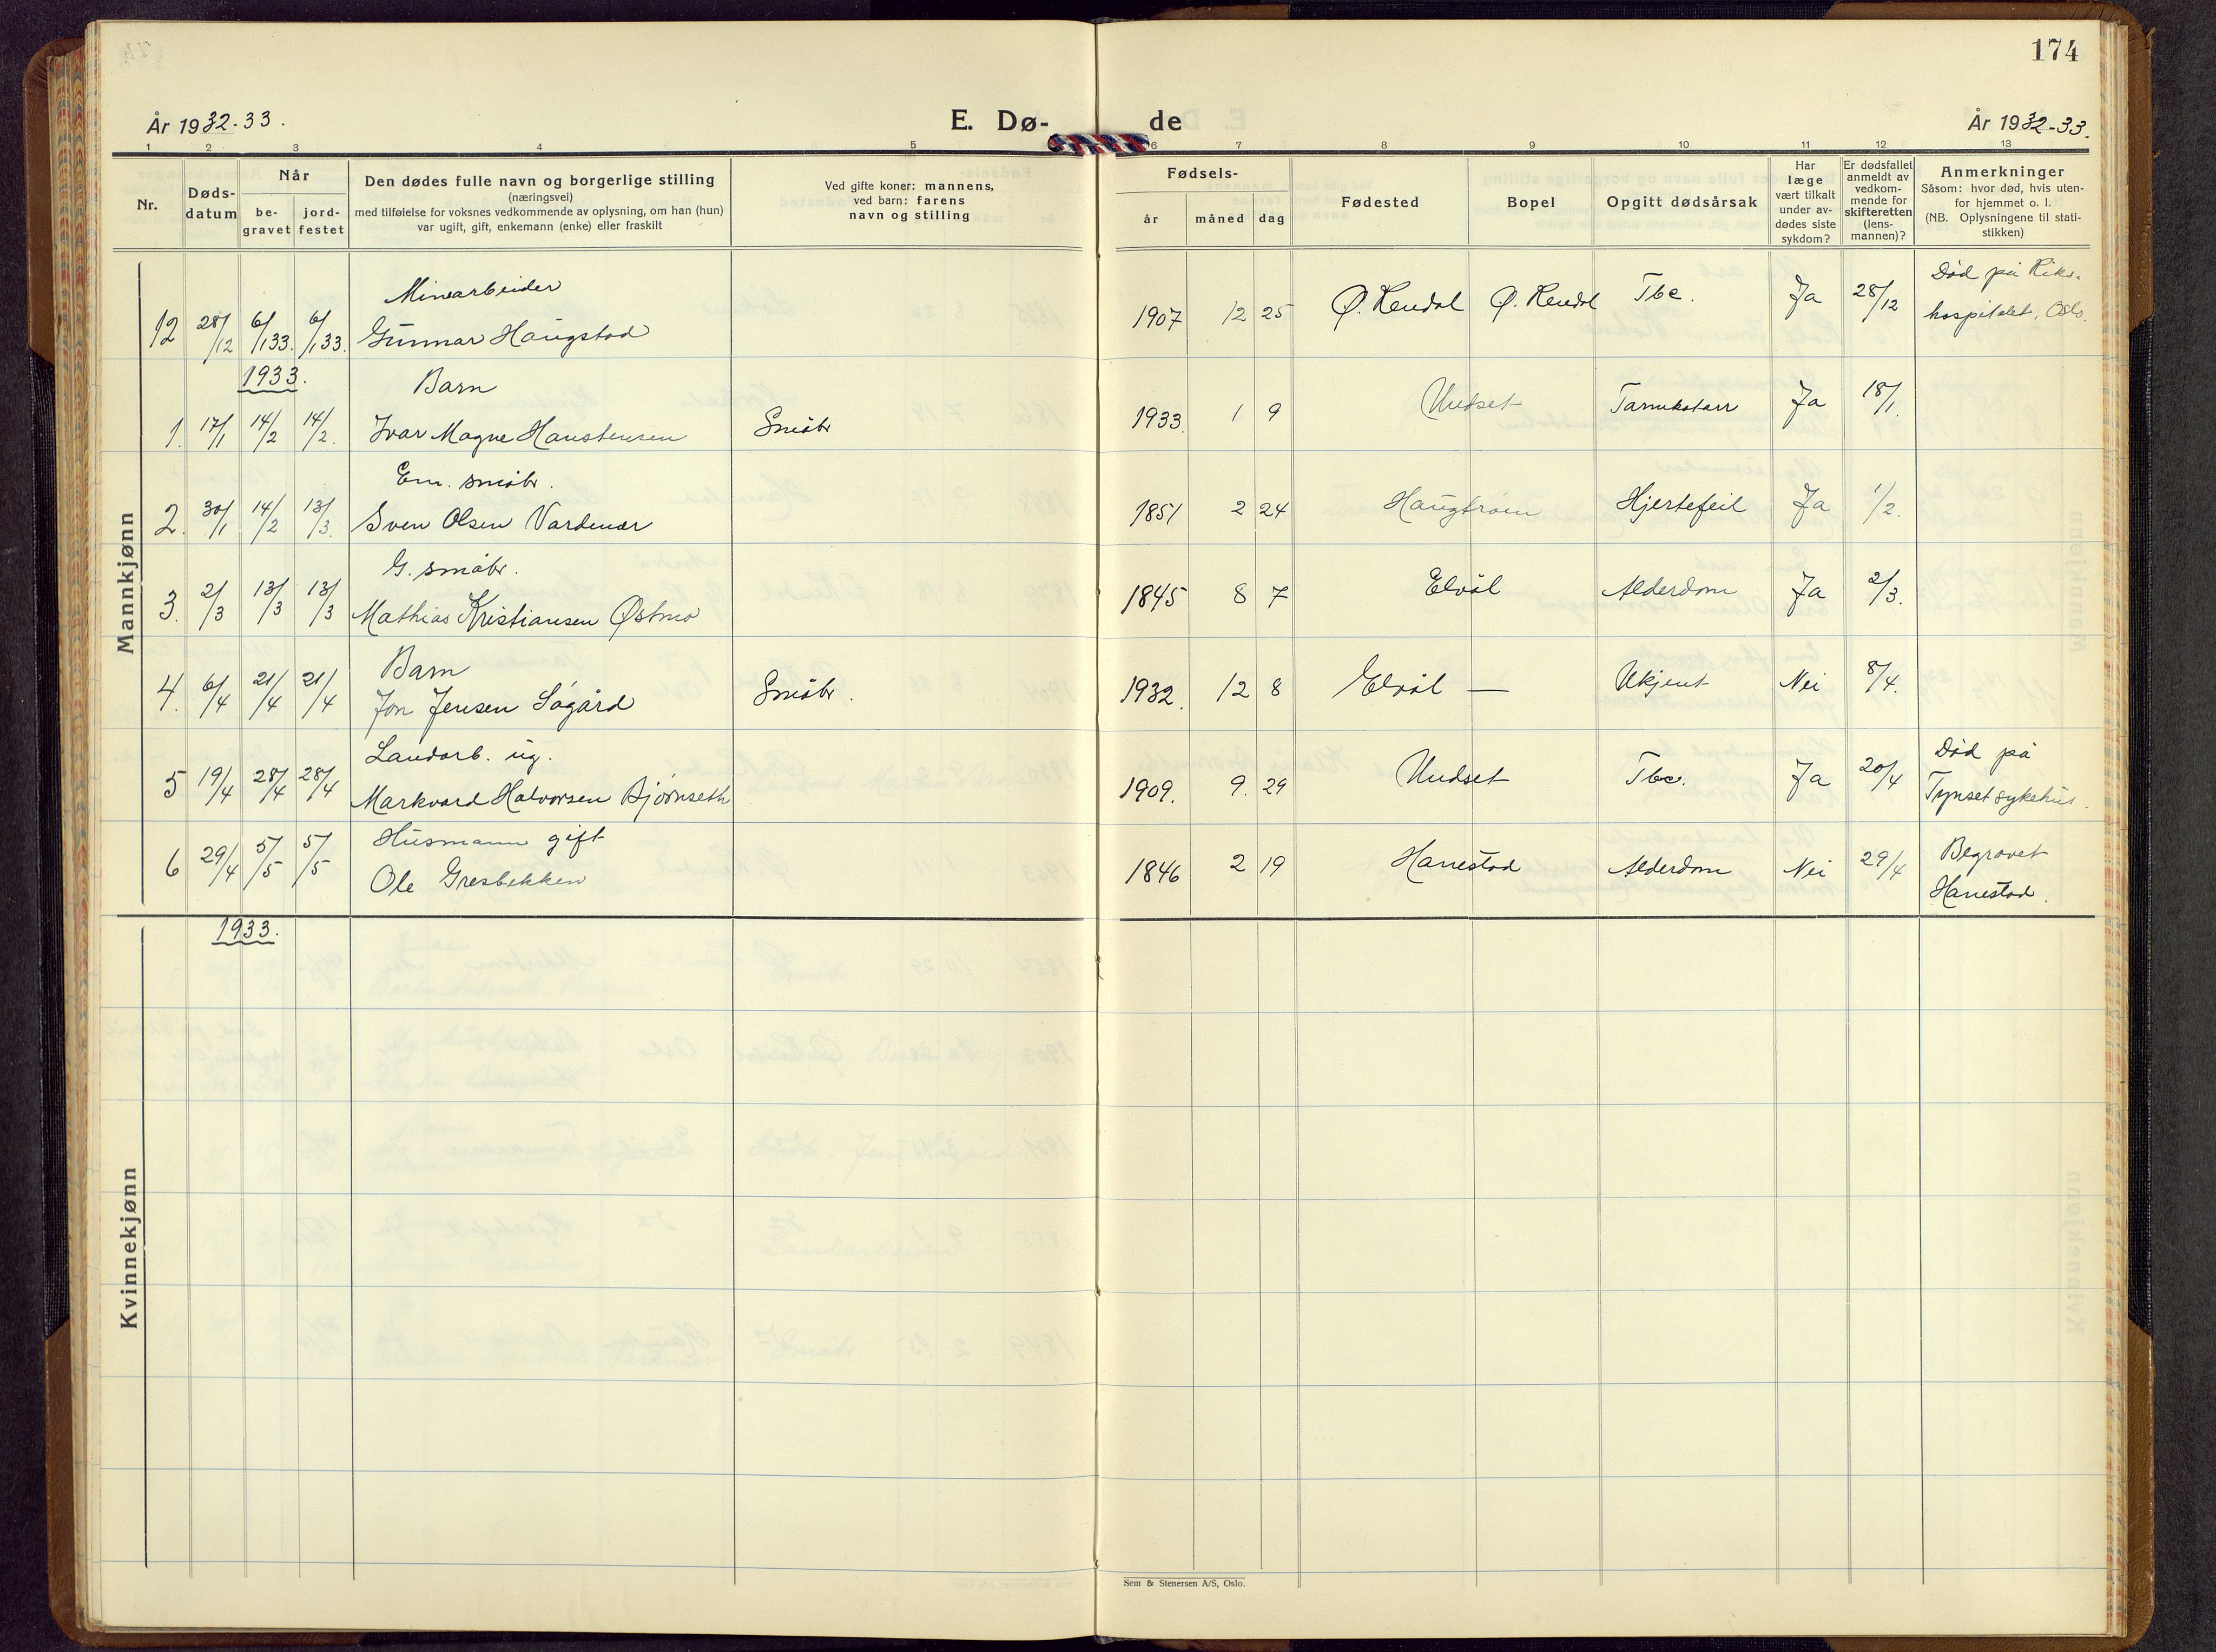 174
År 1932-33.
E. Dø-
de
År 1932-33.
1 2 3 4 5 6 7 8 9 10 11 12 13
Nr.
Døds-
datum
Når
be-
gravet
jord-
festet
Den dødes fulle navn og borgerlige stilling
(næringsvei)
med tilføielse for voksnes vedkommende av oplysning, om han (hun)
var ugift, gift, enkemann (enke) eller fraskilt
Ved gifte koner: mannens,
ved barn: farens
navn og stilling
Fødsels-
år
måned
dag
Fødested
Bopel
Opgitt dødsårsak
Har
læge
vært tilkalt
under av-
dødes siste
sykdom?
Er dødsfallet
anmeldt av
vedkom-
mende for
skifteretten
(lens-
mannen)?
Anmerkninger
Såsom: hvor død, hvis uten-
for hjemmet o. l.
(NB. Oplysningene til stati-
stikken)
Mannkjønn
Minearbeider
12 28/12 6/1 33. 6/1 33. Gunnar Haugstad 1907 12 25 Ø. Rendal Ø. Rendal Tbc. Ja 28/12 Død på Riks-
hospitalet, Oslo.
1933.
Barn
1. 17/1 14/2 14/2. Ivar Magne Hanstensen Småbr 1933. 1 9 Undset Ja 18/1.
Em. småbr.
2. 30/1 14/2 13/3. Sven Olsen Vardenær 1851 2 24 Haugtrøen Hjertefeil Ja 1/2.
G. småbr.
3. 2/3 13/3 13/3 Mathias Kristiansen Østmo 1845 8 7 Elvål Alderdom Ja 2/3.
Barn
4. 6/4 21/4 21/4 Jon Jensen Søgård Småbr. 1932. 12 8 Elvål — Ukjent Nei 8/4.
Landarb. ug.
5 19/4 28/4 28/4 Markvard Halvorsen Bjørnseth 1909. 9. 29 Undset Tbc. Ja 20/4 Død på
Tynset sykehus.
Husmann gift
6 29/4 5/5 5/5 Ole Gresbekken 1846 2 19 Hanestad Alderdom Nei 29/4 Begravet
Hanestad.
1933.
Kvinnekjønn
Sem & Stenersen A/S, Oslo.